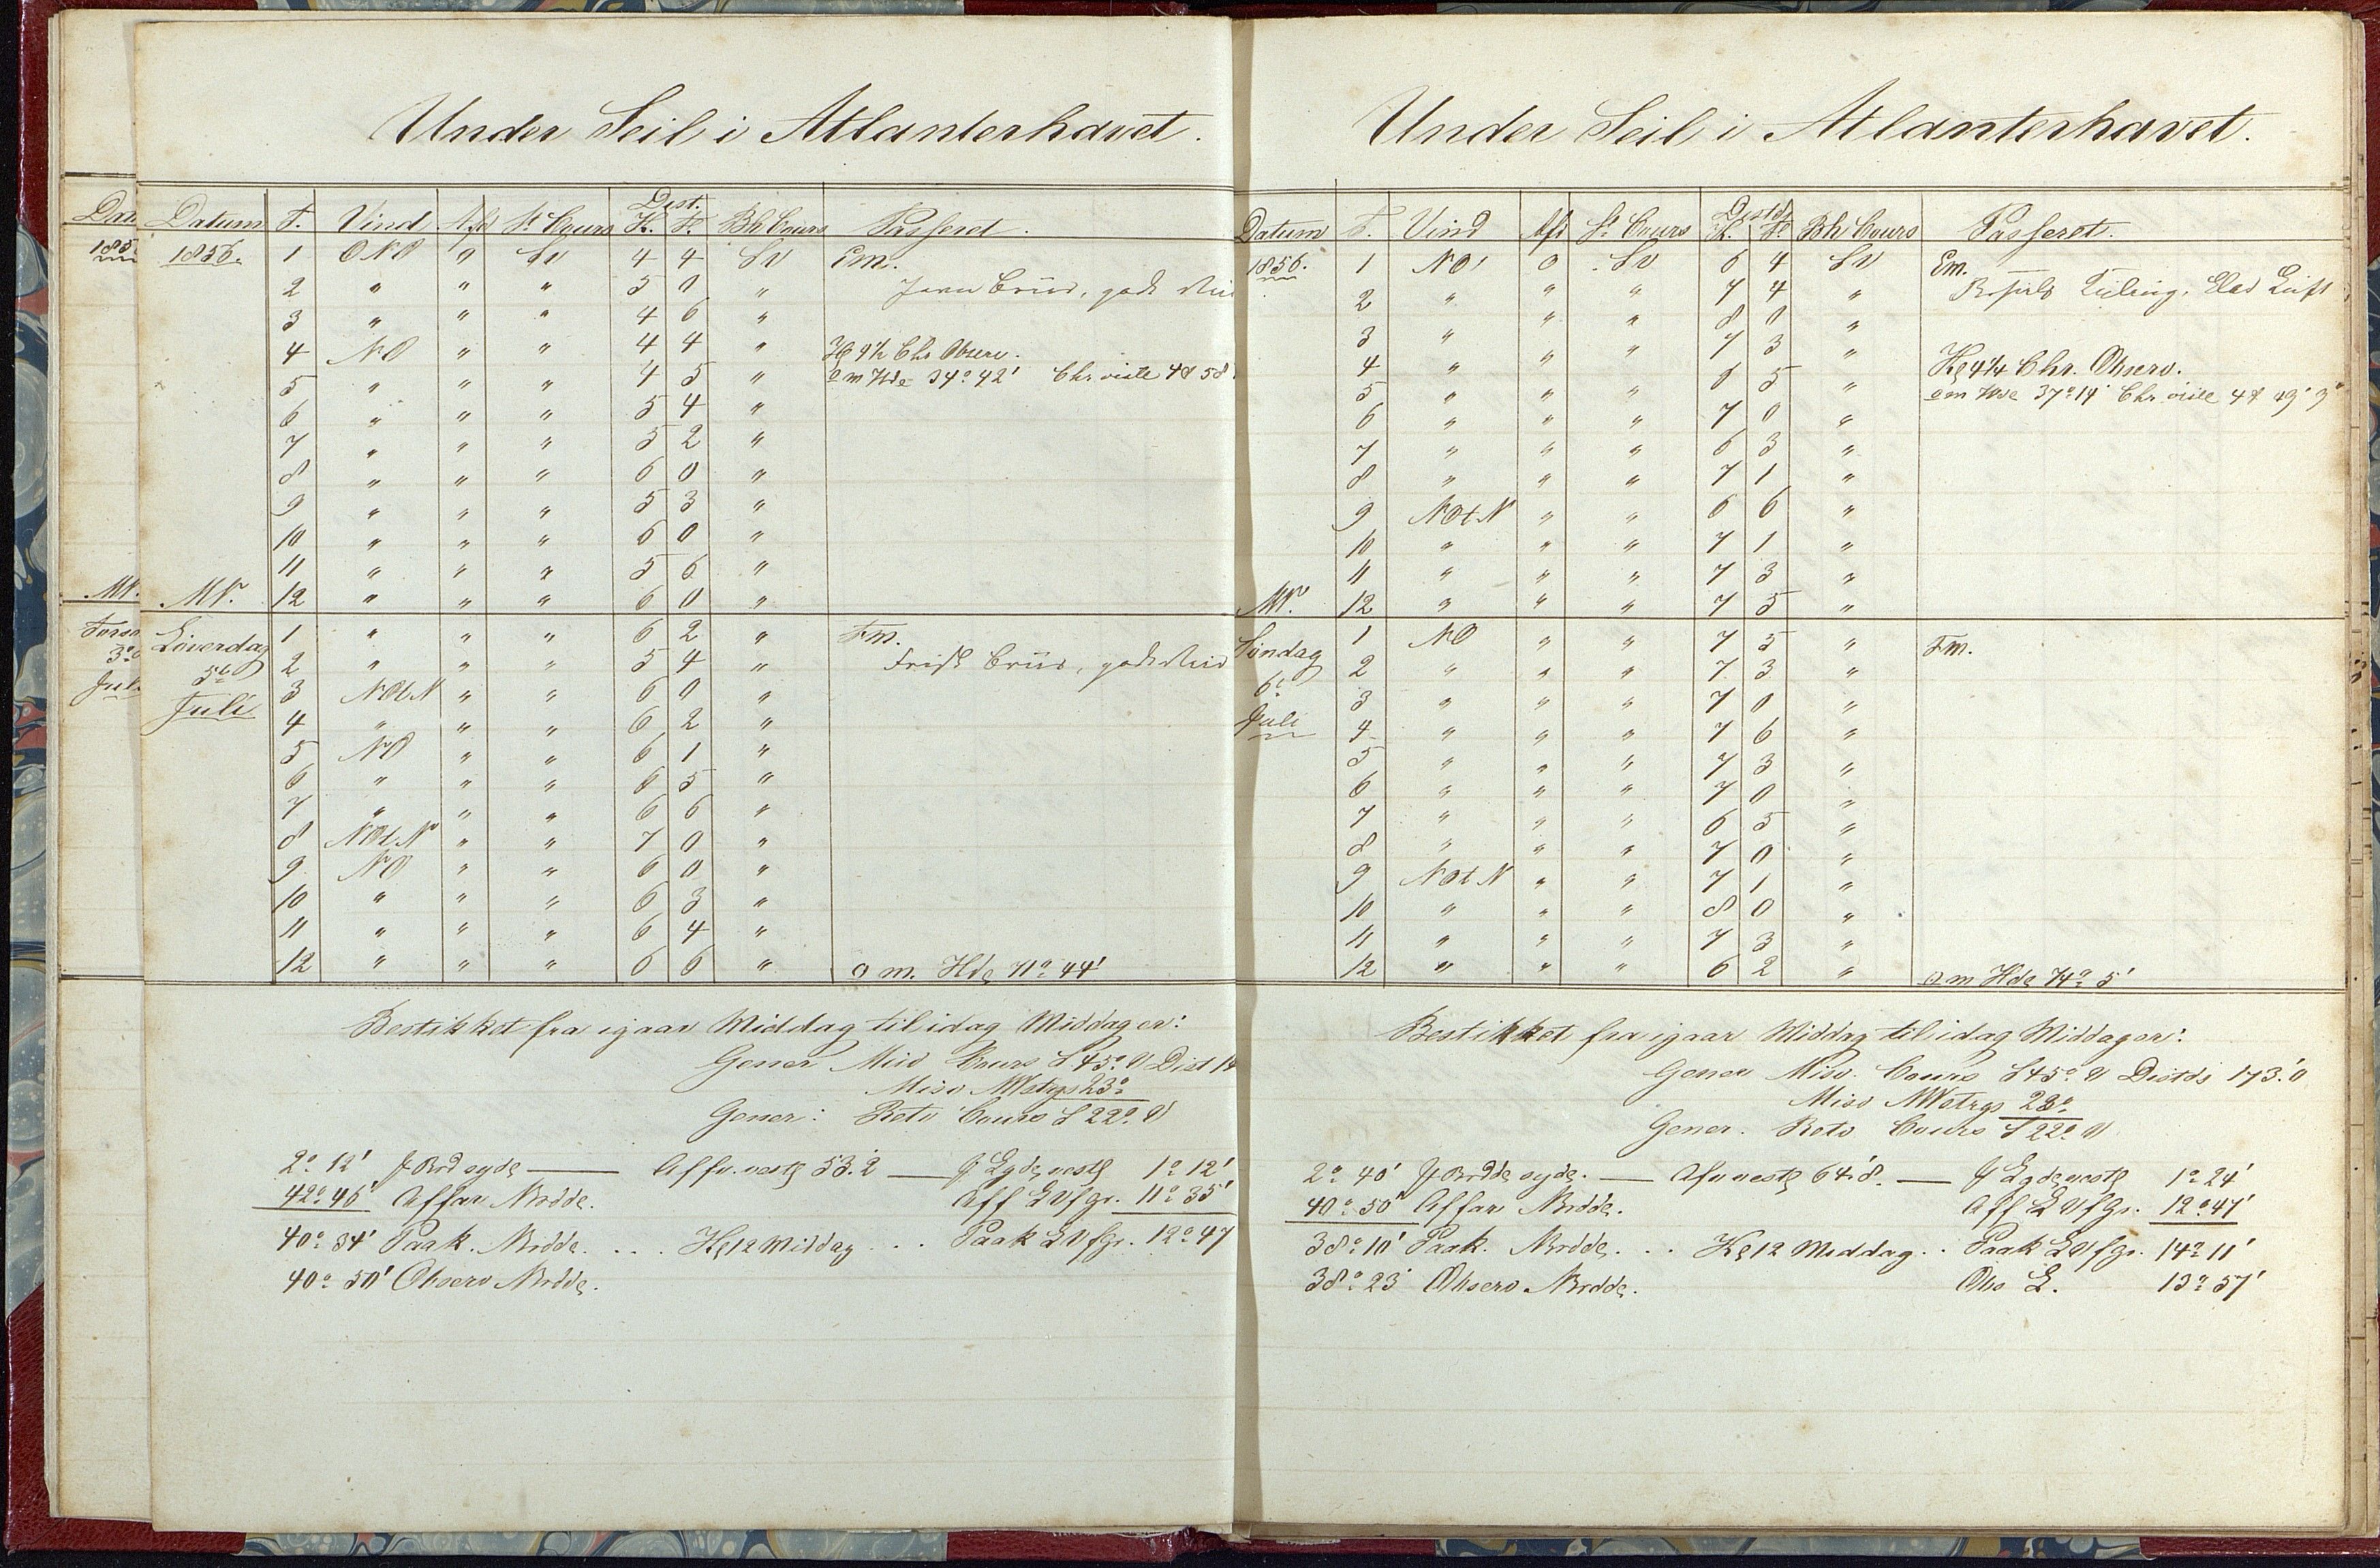 Under Seil i Atlanterhavet.
Datum T. Vind Afd St Cours Dist. K. F. Bh Cours Passeret.
1856. 1 ONO 0 SV 4 4 SV Em.
2 " " " 5 0 "
3 " " " 4 6 "
4 NO " " 4 4 " Chr Observ.
5 " " " 4 5 " om Hde 34° 42' Chr viste 48 58
6 " " " 5 4 "
7 " " " 5 2 "
8 " " " 6 0 "
9 " " " 5 3 "
10 " " " 6 0 "
11 " " " 5 6 "
MN. 12 " " " 6 0 "
Löverdag 1 " " " 6 2 " Fm.
5te 2 " " " 5 4 " Frisk Briis, godt Veir
Juli 3 NOtN " " 6 0 "
4 " " " 6 2 "
5 NO " " 6 1 "
6 " " " 6 5 "
7 " " " 6 6 "
8 NOtN " " 7 0 "
9 NO " " 6 0 "
10 " " " 6 3 "
11 " " " 6 4 "
12 " " " 6 6 " o m. Hde 71° 44'
Bestikket fra igaar Middag til idag Middag er:
Gener Misv Cours S 45° V Dist 14
Misv NVstrgs 23°
Gener: Retv Cours S 22° V
2° 12' F Brd syde — Affv. veste 53.2 — F Lgde veste 1° 12'
42° 46' Affar Nrdde. Aff L V f Gr. 11° 35'
40° 34' Paak. Nrdde. . . . Kl 12 Middag . . . Paak L V f Gr. 12° 47
40° 50' Observ Nrdde.
Under Seil i Atlanterhavet.
Datum T. Vind Afd St Cours Distds K. F. Bh Cours Passeret.
1856. 1 NO 0 SV 6 4 SV Em.
2 " " " 7 4 " Kuling,
3 " " " 8 0 "
4 " " " 7 3 " Kl 4¼ Chr. Observ.
5 " " " 8 5 " om Hde 37° 14' Chr. viste 4 49' 9"
6 " " " 7 0 "
7 " " " 6 3 "
8 " " " 7 1 "
9 NOtN " " 6 6 "
10 " " " 7 1 "
11 " " " 7 3 "
MN. 12 " " " 7 5 "
Söndag 1 NO " " 7 5 " Fm.
6te 2 " " " 7 3 "
Juli 3 " " " 7 0 "
4 " " " 7 6 "
5 " " " 7 3 "
6 " " " 7 0 "
7 " " " 6 5 "
8 " " " 7 0 "
9 NOtN " " 7 1 "
10 " " " 8 0 "
11 " " " 7 3 "
12 " " " 6 2 " o m Hde 74° 5'
Bestikket fra igaar Middag til idag Middag er:
Gener Misv. Cours S 45° V Distds 173.'0
Misv NVstrgs 23°
Gener. Retv Cours S 22° V
2° 40' F Brdde syde. — Afv veste 64.'8. — F Lgde veste 1° 24'
40° 50' Affar Nrdde. Aff L V f Gr. 12° 47'
38° 10' Paak. Nrdde. . . Kl 12 Middag . . Paak L V f Gr. 14° 11'
38° 23' Observ Nrdde. Obs L. 13° 57'